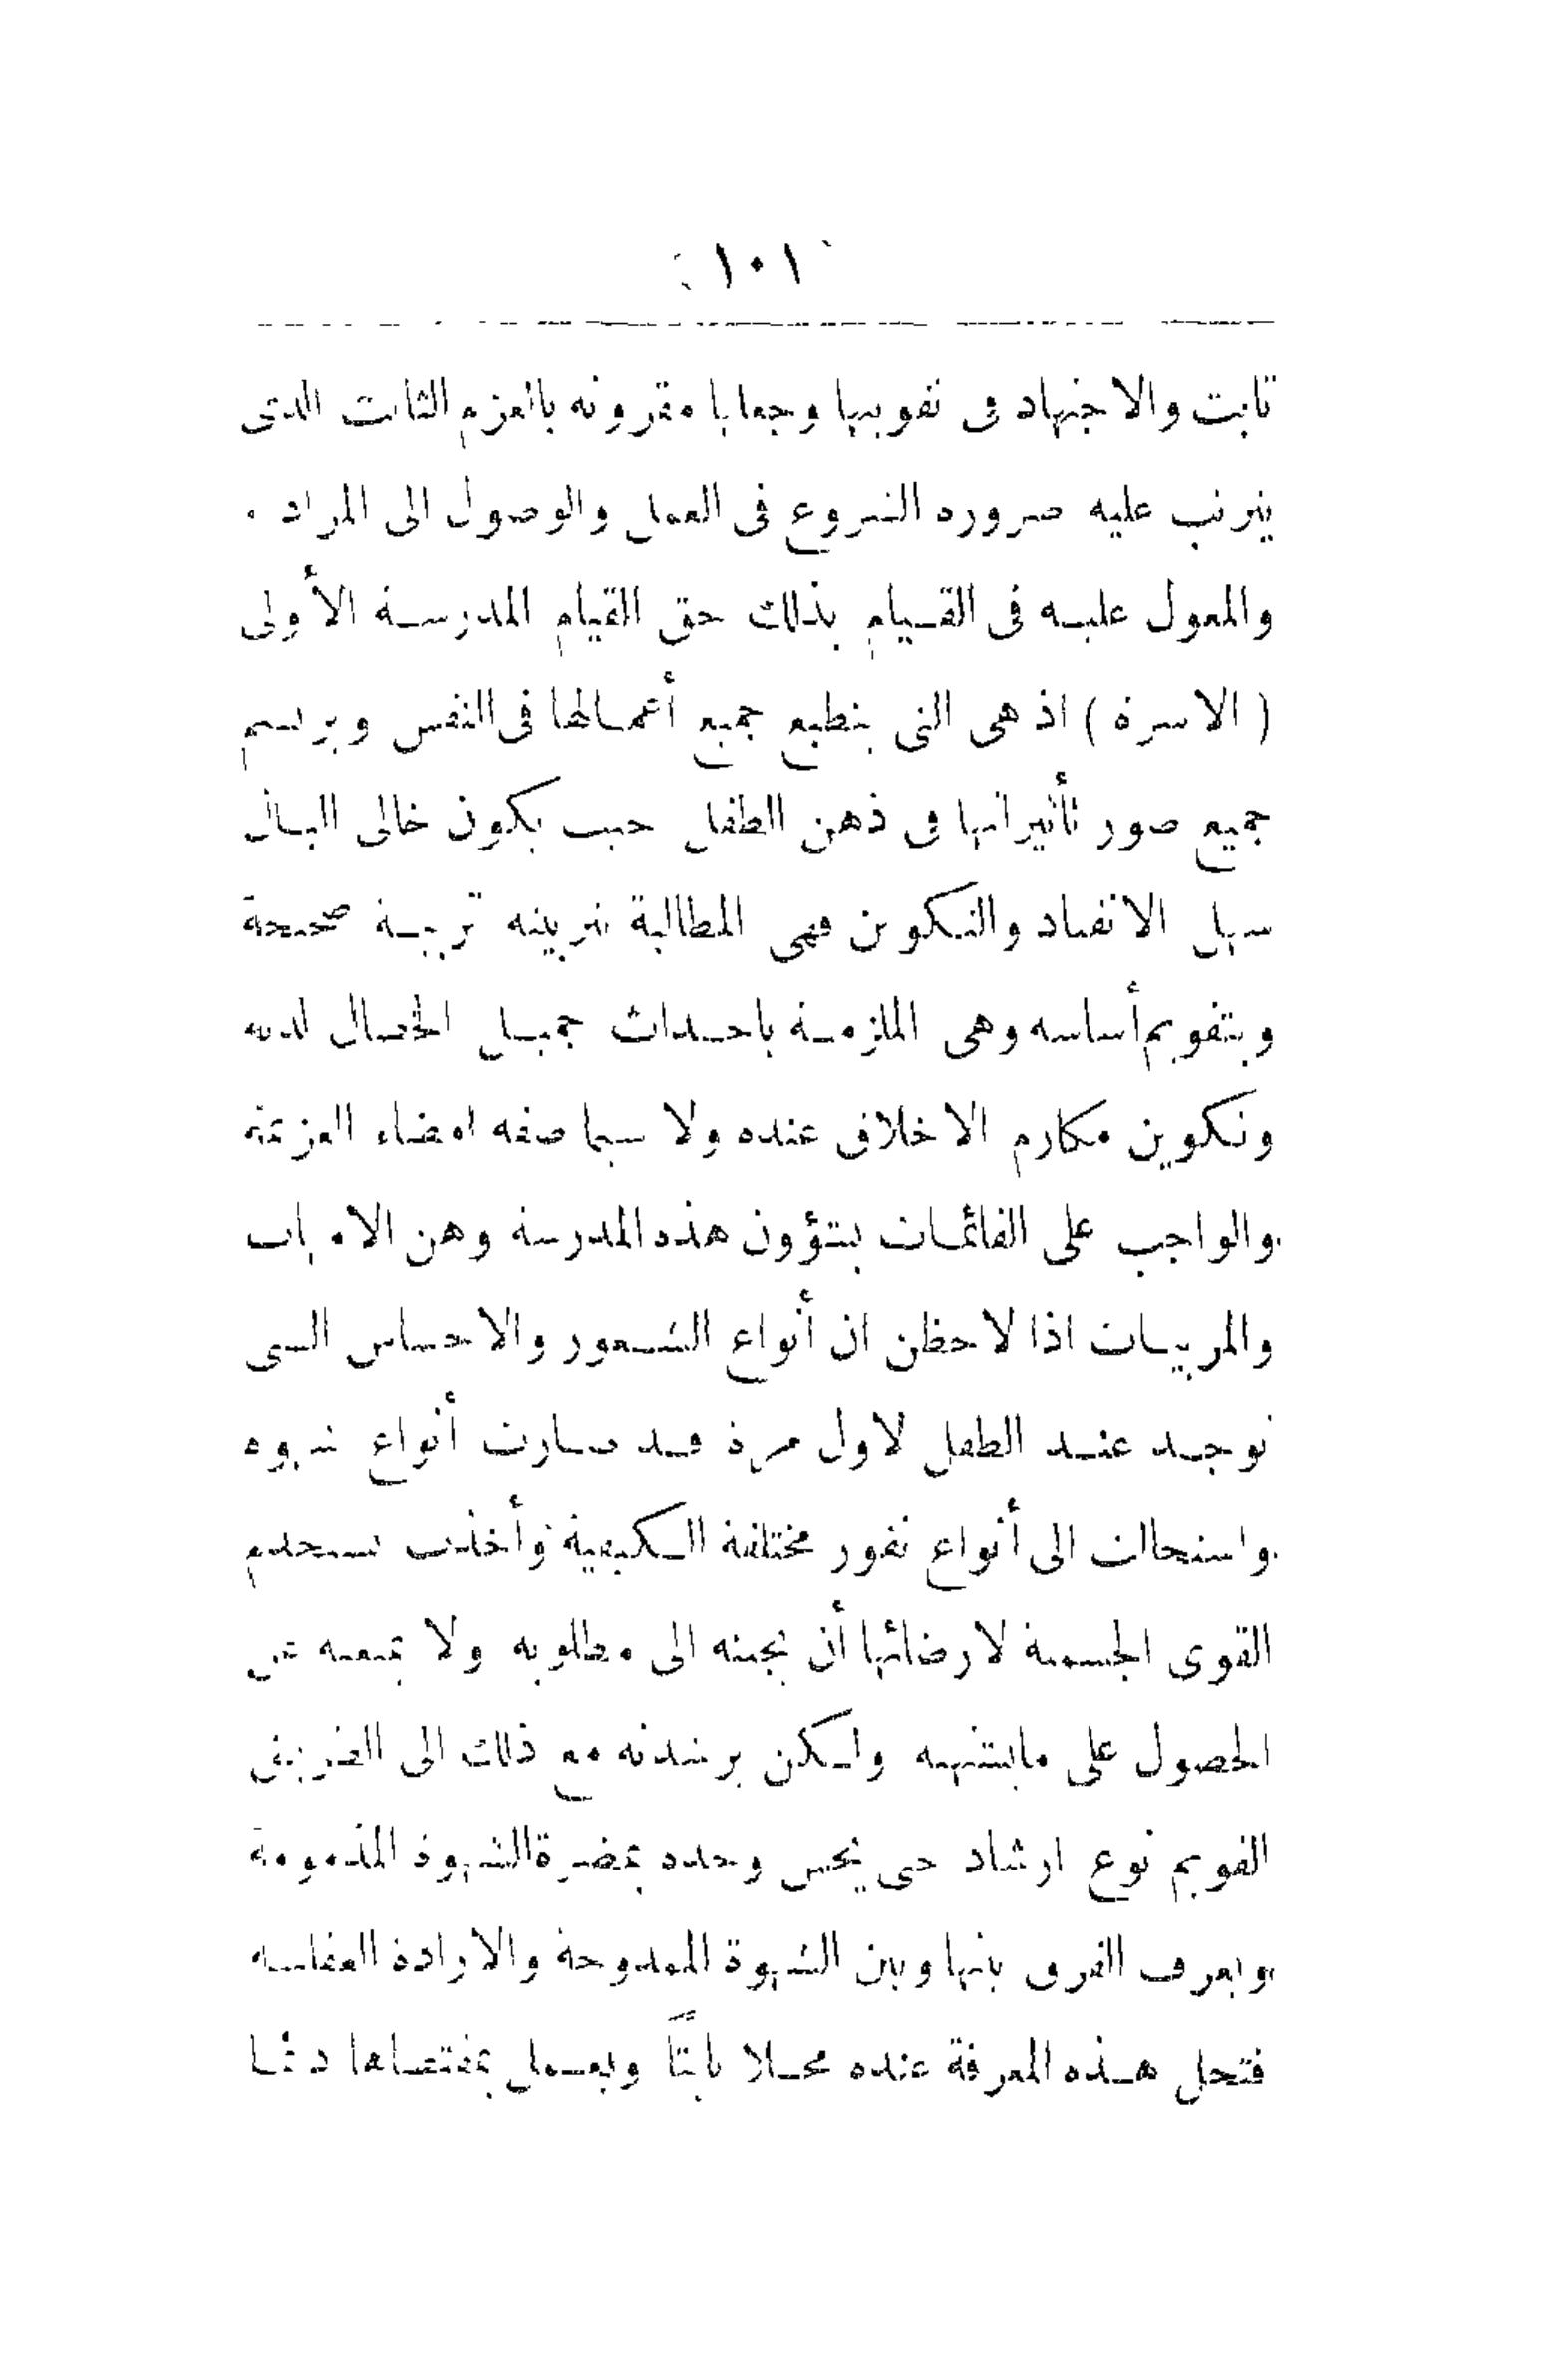 ( ١٠١ )
ثابت والاجتهاد فى تقويتها وجعلها مقرونة بالعزم الثابت الذى
يترتب عليه ضرورة الشروع فى العمل والوصول الى المراد .
والمعول عليه فى القيام بذلك حق القيام المدرسة الأولى
( الاسرة ) اذ هى التى ينطبع جميع أعمالها فى النفس ويرتسم
جميع صور تأثيراتها فى ذهن الطفل حيث يكون خالى البال
سهل الانقياد والتكوين فهى المطالبة بتربيته تربية صحيحة
وبتقويم أساسه وهى الملزمة باحداث جميل الخصال لديه
وتكوين مكارم الاخلاق عنده ولا سيما صفة امضاء العزيمة
والواجب على القائمات بشؤون هذه المدرسة وهن الامهات
والمربيات اذا لاحظن ان أنواع الشعور والاحساس التى
توجد عند الطفل لاول مرة قد صارت أنواع شهوة
واستحالت الى أنواع نفور مختلفة الكيفية وأخذت تستخدم
القوى الجسمية لارضائها أن يجبنه الى مطلوبه ولا يمنعنه عن
الحصول على مايشتهيه ولكن يرشدنه مع ذلك الى الطريق
القويم نوع ارشاد حتى يحس وحده بمضرة الشهوة المذمومة
ويعرف الفرق بينها وبين الشهوة الممدوحة والارادة العقلية
فتحل هذه المعرفة عنده محلا ثابتًا ويعمل بمقتضاها دائما